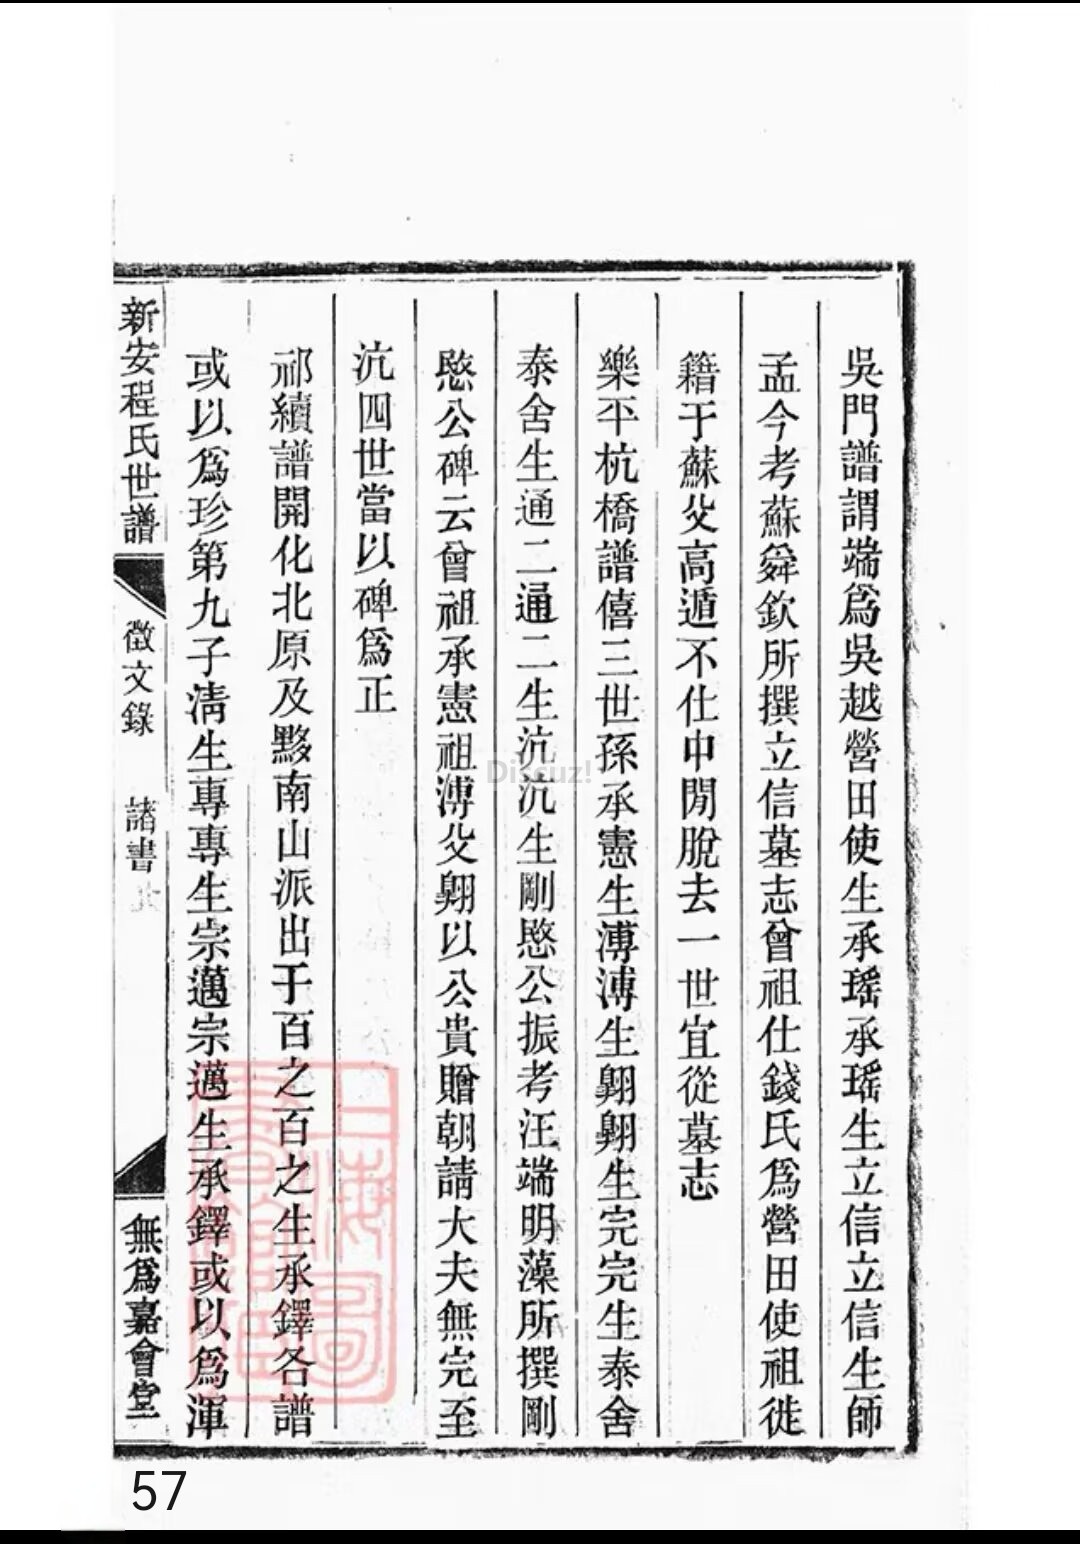 吳門譜謂端爲吳越營田使生承瑤承瑤生立信立信生師
孟今考蘇舜欽所撰立信墓志曾祖仕錢氏爲營田使祖徙
籍于蘇父高遁不仕中閒脫去一世宜從墓志
樂平杭橋譜僖三世孫承憲生溥溥生翺翺生完完生泰舍
泰舍生通二通二生沆沆生剛愍公振考汪端明藻所撰剛
愍公碑云曾祖承憲祖溥父翺以公貴贈朝請大夫無完至
沆四世當以碑爲正
祁續譜開化北原及黟南山派出于百之百之生承鐸各譜
或以爲珍第九子淸生專專生宗邁宗邁生承鐸或以爲渾
新安程氏世譜
徵文錄
諸書
無爲嘉會堂
上海圖
書館藏
Discuz!
57